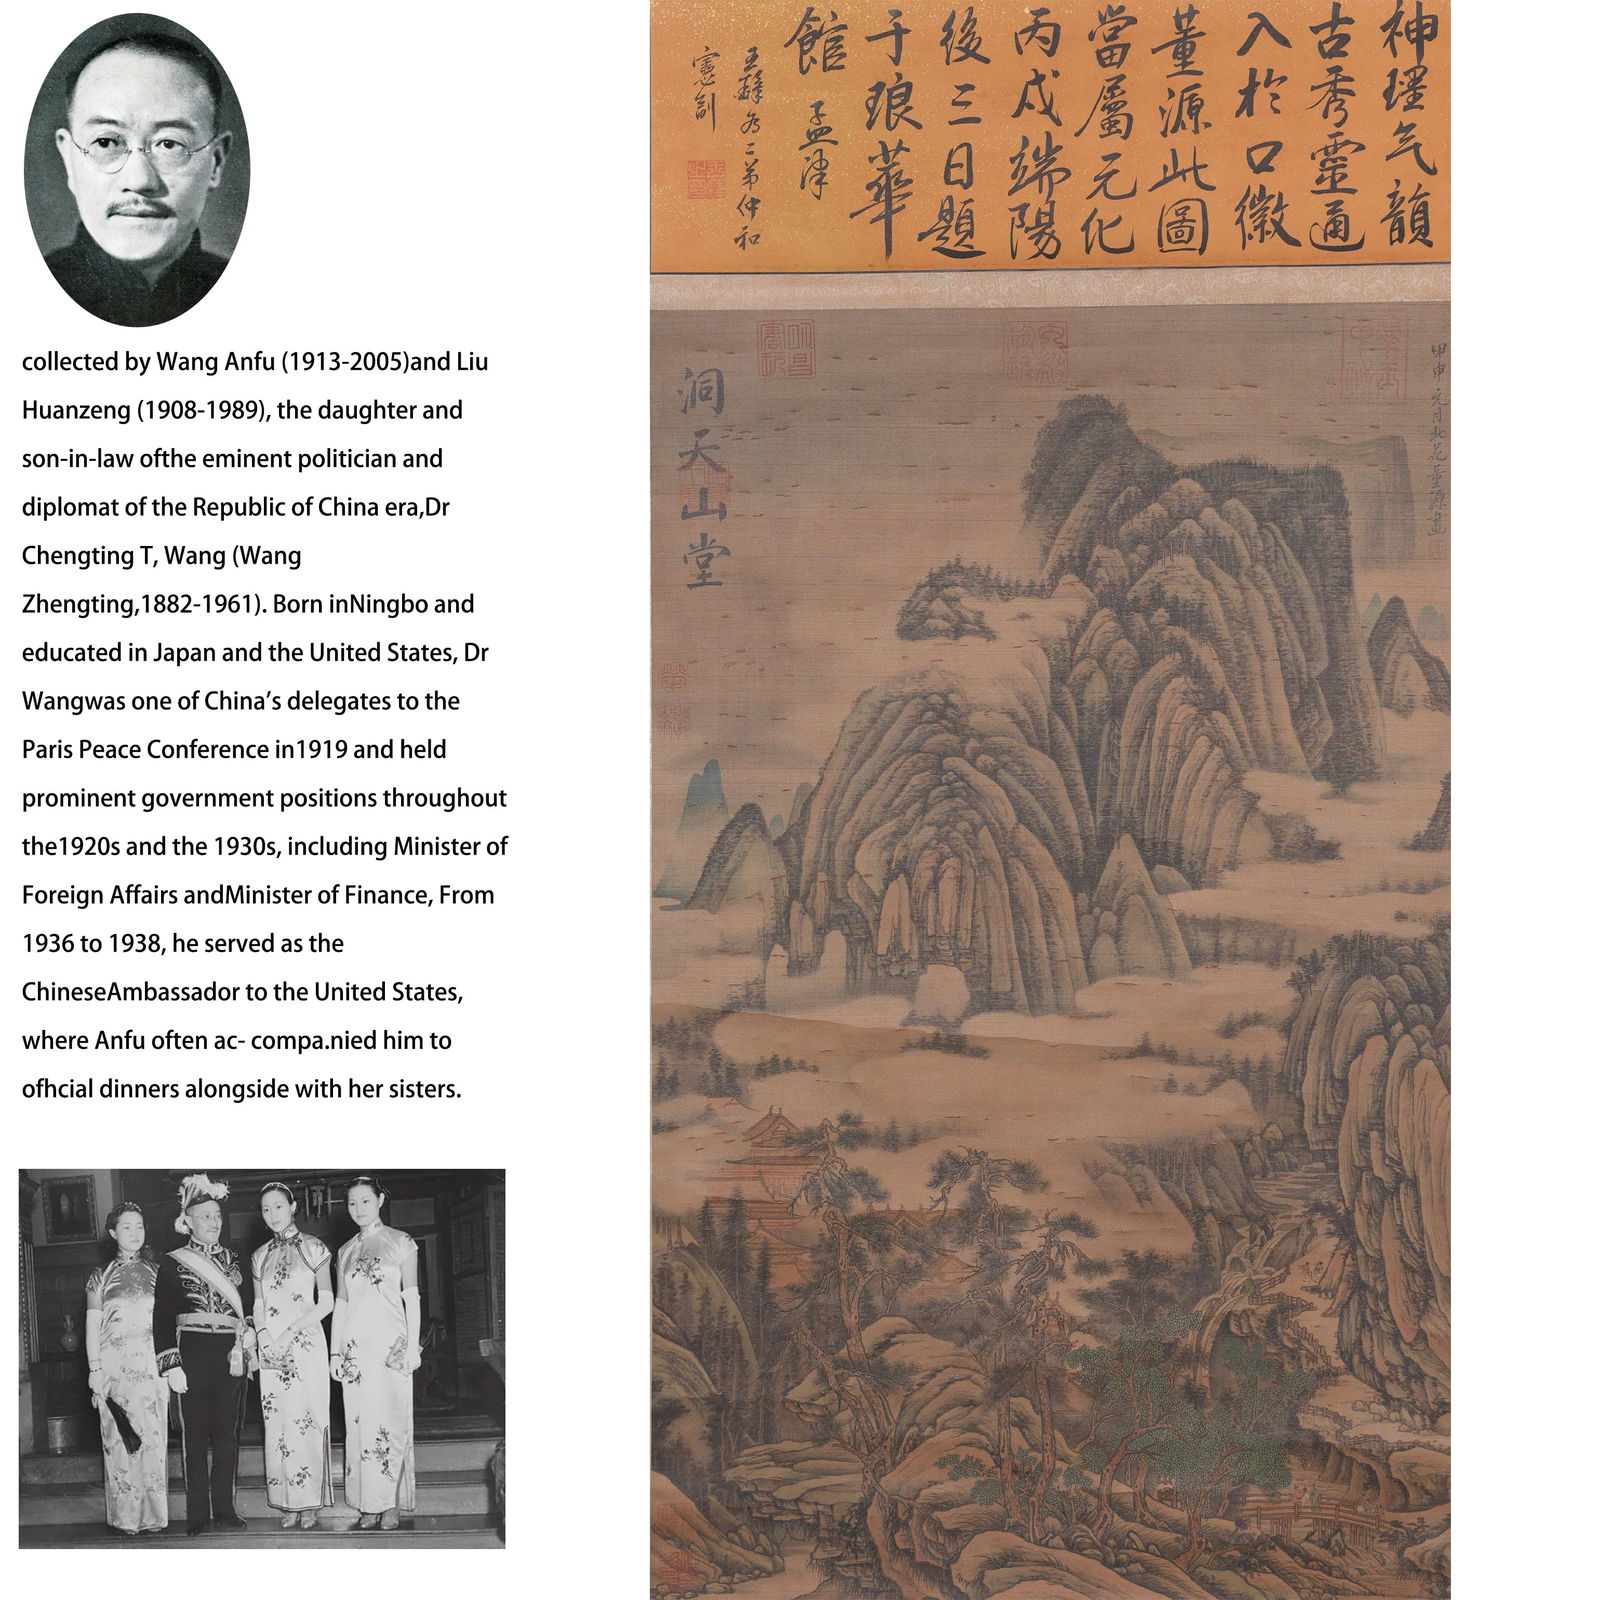 collected by Wang Anfu (1913-2005)and Liu
Huanzeng (1908-1989), the daughter and
son-in-law ofthe eminent politician and
diplomat of the Republic of China era,Dr
Chengting T, Wang (Wang
Zhengting,1882-1961). Born inNingbo and
educated in Japan and the United States, Dr
Wangwas one of China’s delegates to the
Paris Peace Conference in1919 and held
prominent government positions throughout
the1920s and the 1930s, including Minister of
Foreign Affairs andMinister of Finance, From
1936 to 1938, he served as the
ChineseAmbassador to the United States,
where Anfu often ac- compa.nied him to
ofhcial dinners alongside with her sisters.
神理气韻
古秀靈通
入於口徽
董源此圖
當屬元化
丙戌端陽
後三日題
于琅華
館 孟津
王鐸為二弟仲和
憲副
甲申元月北苑董源畫
洞天山堂